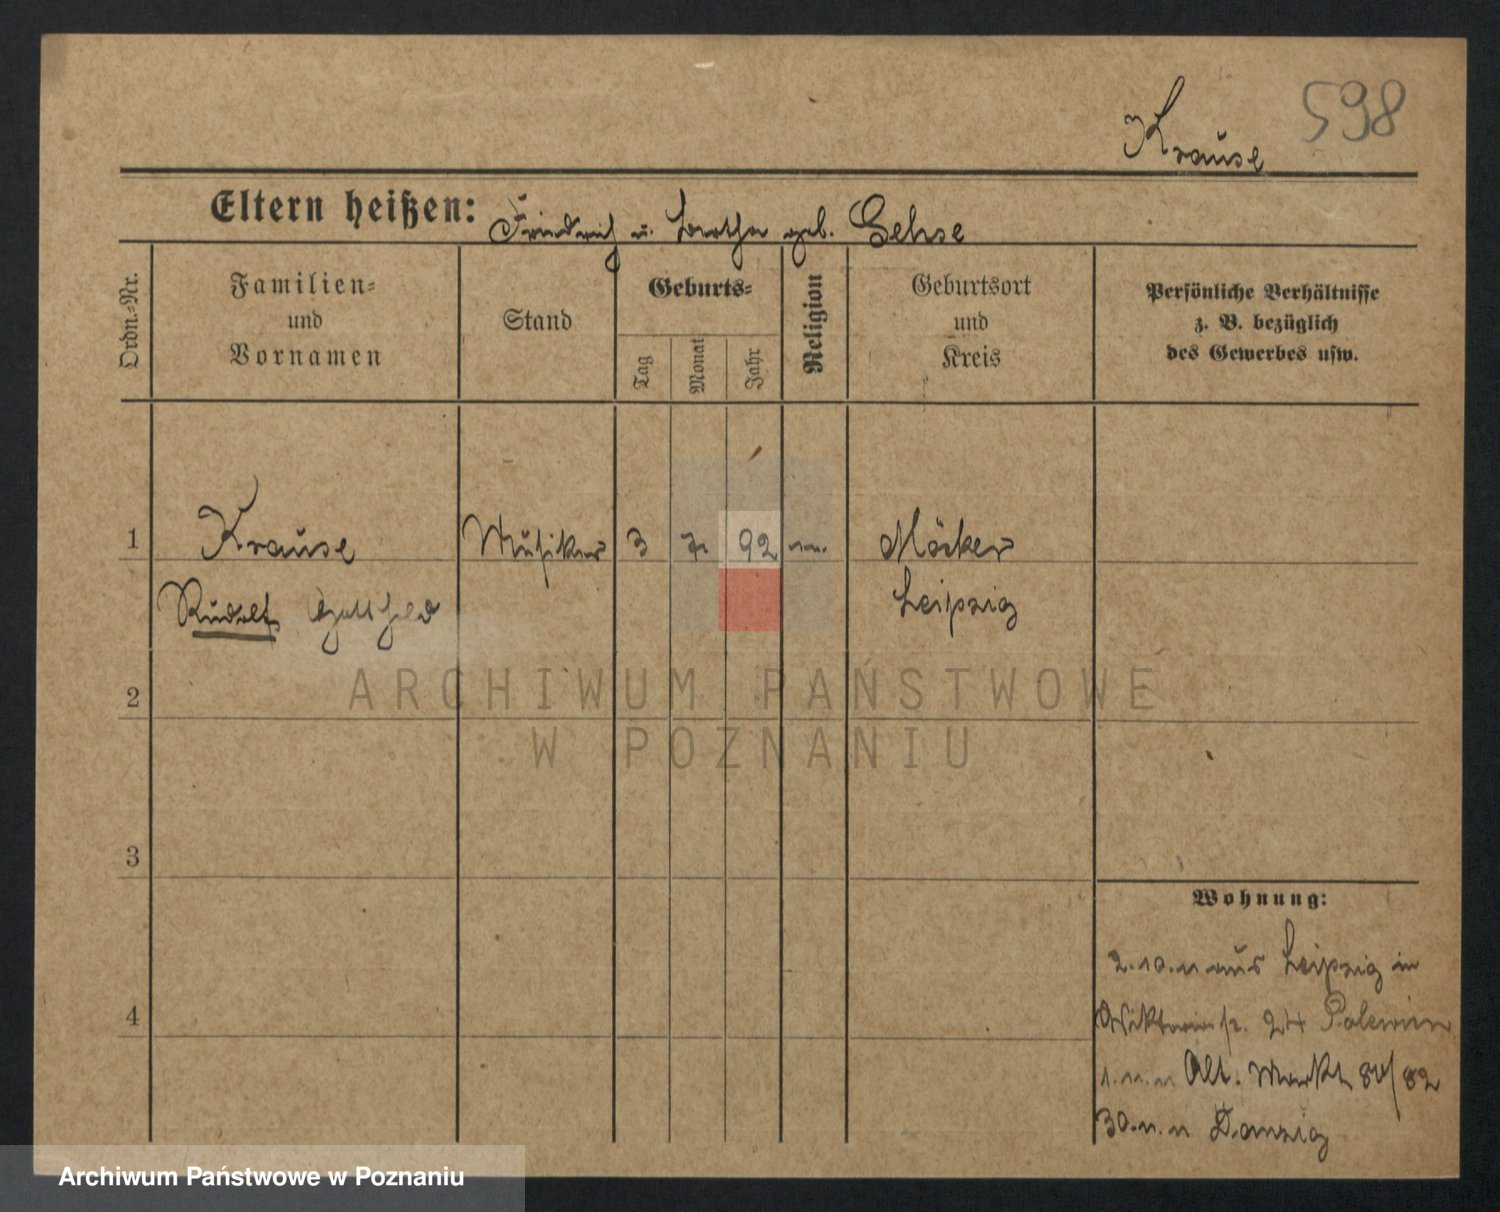 598
Krause
Eltern heißen: Friedrich u. Bertha geb. Gehse
Ordn.-Nr.
Familien-
und
Vornamen
Stand
Geburts-
Tag
Monat
Jahr
Religion
Geburtsort
und
Kreis
Persönliche Verhältnisse
z. B. bezüglich
des Gewerbes usw.
1
Krause
Musiker
3
7.
92
Möcker
Rudolf
Leipzig
ARCHIWUM PAŃSTWOWE
W POZNANIU
2
3
4
Wohnung:
2.10.11 aus Leipzig in
24
1.11.11 Alt. Markt 80/82
30.11.11 Danzig
Archiwum Państwowe w Poznaniu